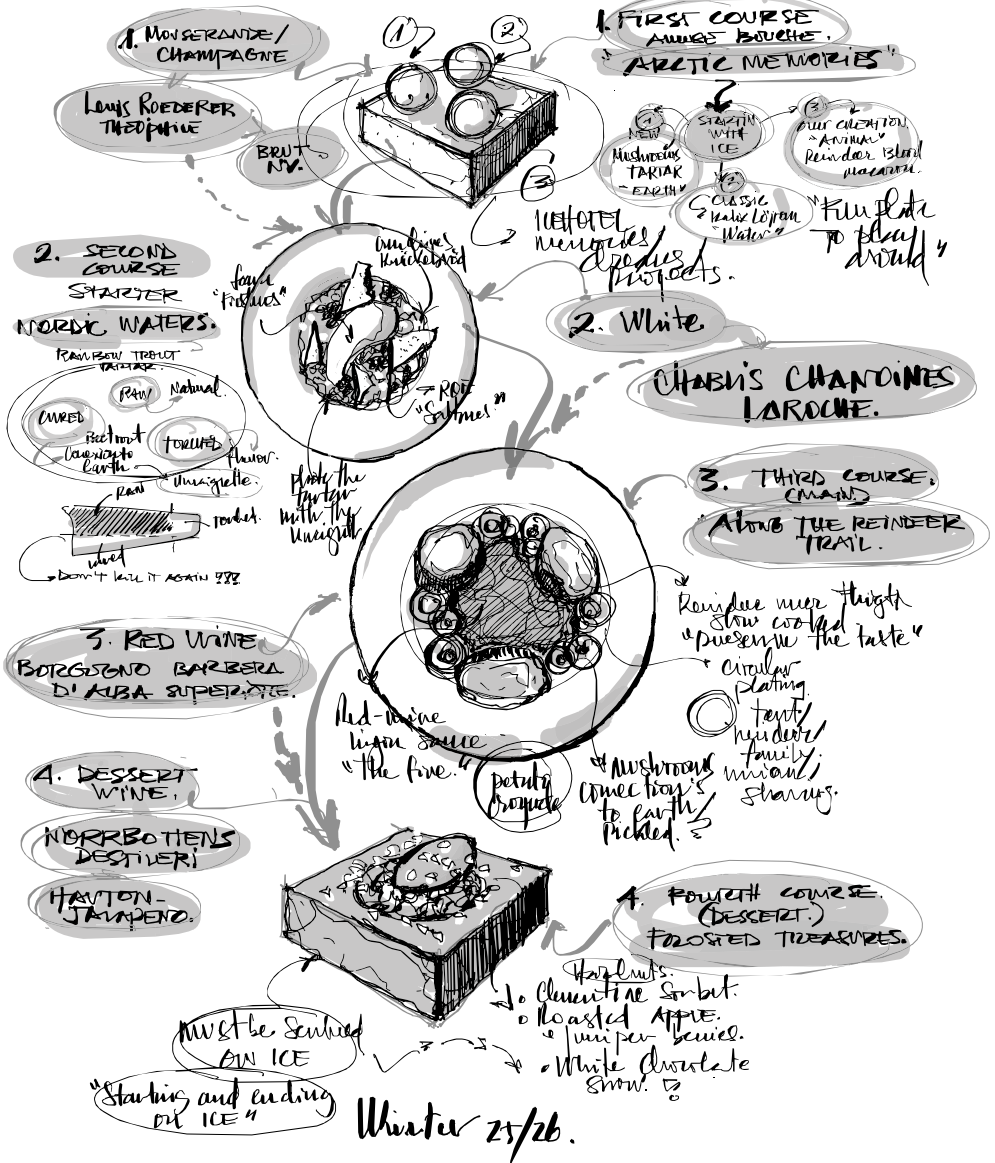 1. MOUSERANDE/
CHAMPAGNE
LOUIS ROEDERER
THEOPHILE
BRUT
NV.
1
2
3
1. FIRST COURSE
AMUSE BOUCHE.
"ARCTIC MEMORIES"
STARTIN
WITH
ICE
1
NEW
Mushrooms
TARTAR
"EARTH"
2
CLASSIC
Kalix Löjrom
"Water"
3
OUR CREATION
"ANIMAL"
Reindeer Blood
macaron.
"Fun plate
TO play
around"
ICEHOTEL
memories/
projects.
2. SECOND
COURSE
STARTER
NORDIC WATERS.
RAINBOW TROUT
TARTAR.
RAW
Natural.
CURED
Beetroot
Conexion to
earth
TORCHED
flavor.
Vinaigrette.
RAW
torched.
cured
DON'T KILL IT AGAIN ???
knäckebröd
ROE
plate the
tartar
with the
Vinaigrette
2. White
CHABLIS CHANOINES
LAROCHE.
3. THIRD COURSE.
(MAIN)
"ALONG THE REINDEER
TRAIL.
Reindeer inner thigh
slow cooked
"preserve the taste"
circular
plating.
tent/
reindeer/
family,
union/
sharing.
3. RED WINE
BORGOGNO BARBERA
D'ALBA SUPERIORE.
Red-wine
lingon sauce
"The fire."
potato
croquete
Mushrooms
conection's
to earth/
Pickled.
4. DESSERT
WINE.
NORRBOTTENS
DESTILLERI
HAVTORN-
JALAPENO.
4. FOURTH COURSE.
(DESSERT.)
FROSTED TREASURES.
Hazelnuts.
Clementine Sorbet.
Roasted APPLE.
juniper berries.
White chocolate
snow.
Must be Served
ON ICE
"Starting and ending
on ICE"
Winter 25/26.